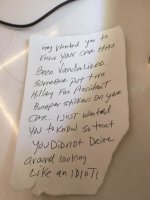 hey wanted you to
Know your car Had
Been Vandalized.
Someone put two
Hillary For President
Bumper stickers on your
car. I just wanted
you to know so that
you Did not Drive
around looking
Like an IDIOT!